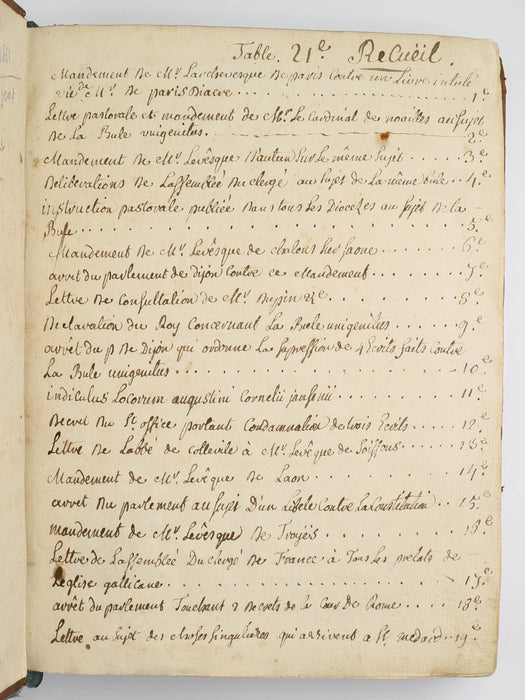 Table. 21.e Recueil.
Mandement de Mr. Larchevesque de paris Contre un Livre intulé
vie de Mr. de paris Diacre . . . . . . . . 1.e
Lettre pastorale et mandement de Mgr. Le Cardinal de noailles au sujet
de La Bule unigenitus. 2.e
Mandement de Mr. Levêsque Dautun Sur Le même Sujet . . . . 3.e
Deliberations de Lassemblée Du clergé au sujet de La même bule . . 4.e
instruction pastorale publiée Dans tous Les Diocezes au sujet de La
Bule . . . . . . . . 5.e
Mandement de Mr. Levêsque de chalons Sur Saone. . . . . 6.e
arret du parlement de Dijon Contre ce Mandement . . . . . . 7.e
Lettre de Consultation de Mr. . . . . . . 8.e
Declaration du Roy Concernant La Bule unigenitus . . . . . . 9.e
arrêt du p de Dijon qui ordonne La Supression de 4 Ecrits faits Contre
La Bule unigenitus . . . . . . . . 10.e
indiculus Locorum augustini Cornelii jansenii . . . . . 11.e
Decret du St. office portant Condamnation de trois Ecrits . . . . 12.e
Lettre de Labbé de collevile à Mr. Levêque de Soissons . . . . 13.e
Mandement de Mr. Levêque de Laon . . . . . . . . 14.e
arret du parlement au Sujet D'un Libele Contre La Constitution . . 15.e
mandement de Mr. Levêsque de Troyes . . . . . . . 16.e
Lettre de Lassemblée Du clergé de France à Tous Les prelats de
Leglise gallicane . . . . . . . . 17.e
arrêt du parlement Touchant 2 Decrets de la Cour de Rome . . . . 18.e
Lettre au Sujet des choses singulieres qui arrivent a St. medard . . 19.e